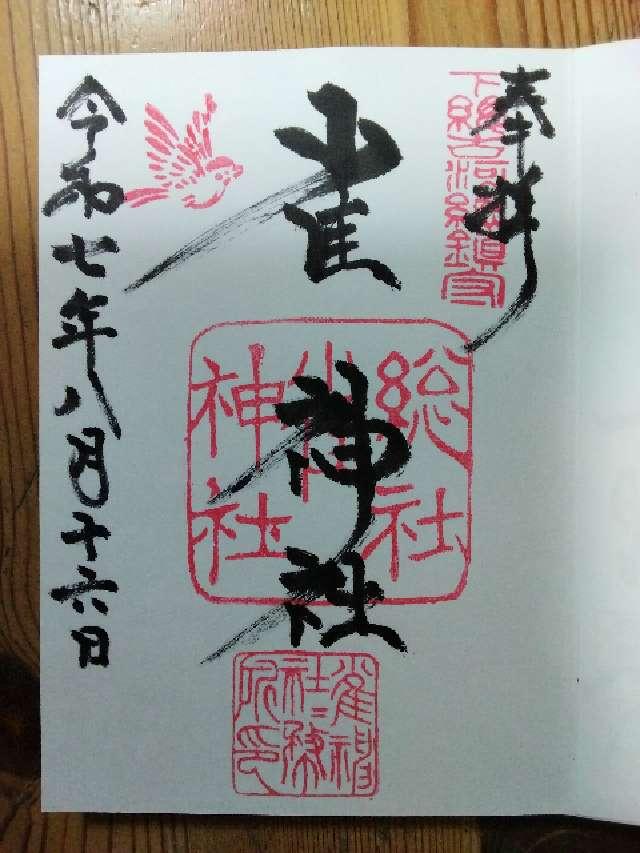 奉拝
下総古河総鎮守
雀神社
総社
雀
神社
雀神
社務
所印
令和七年八月十六日